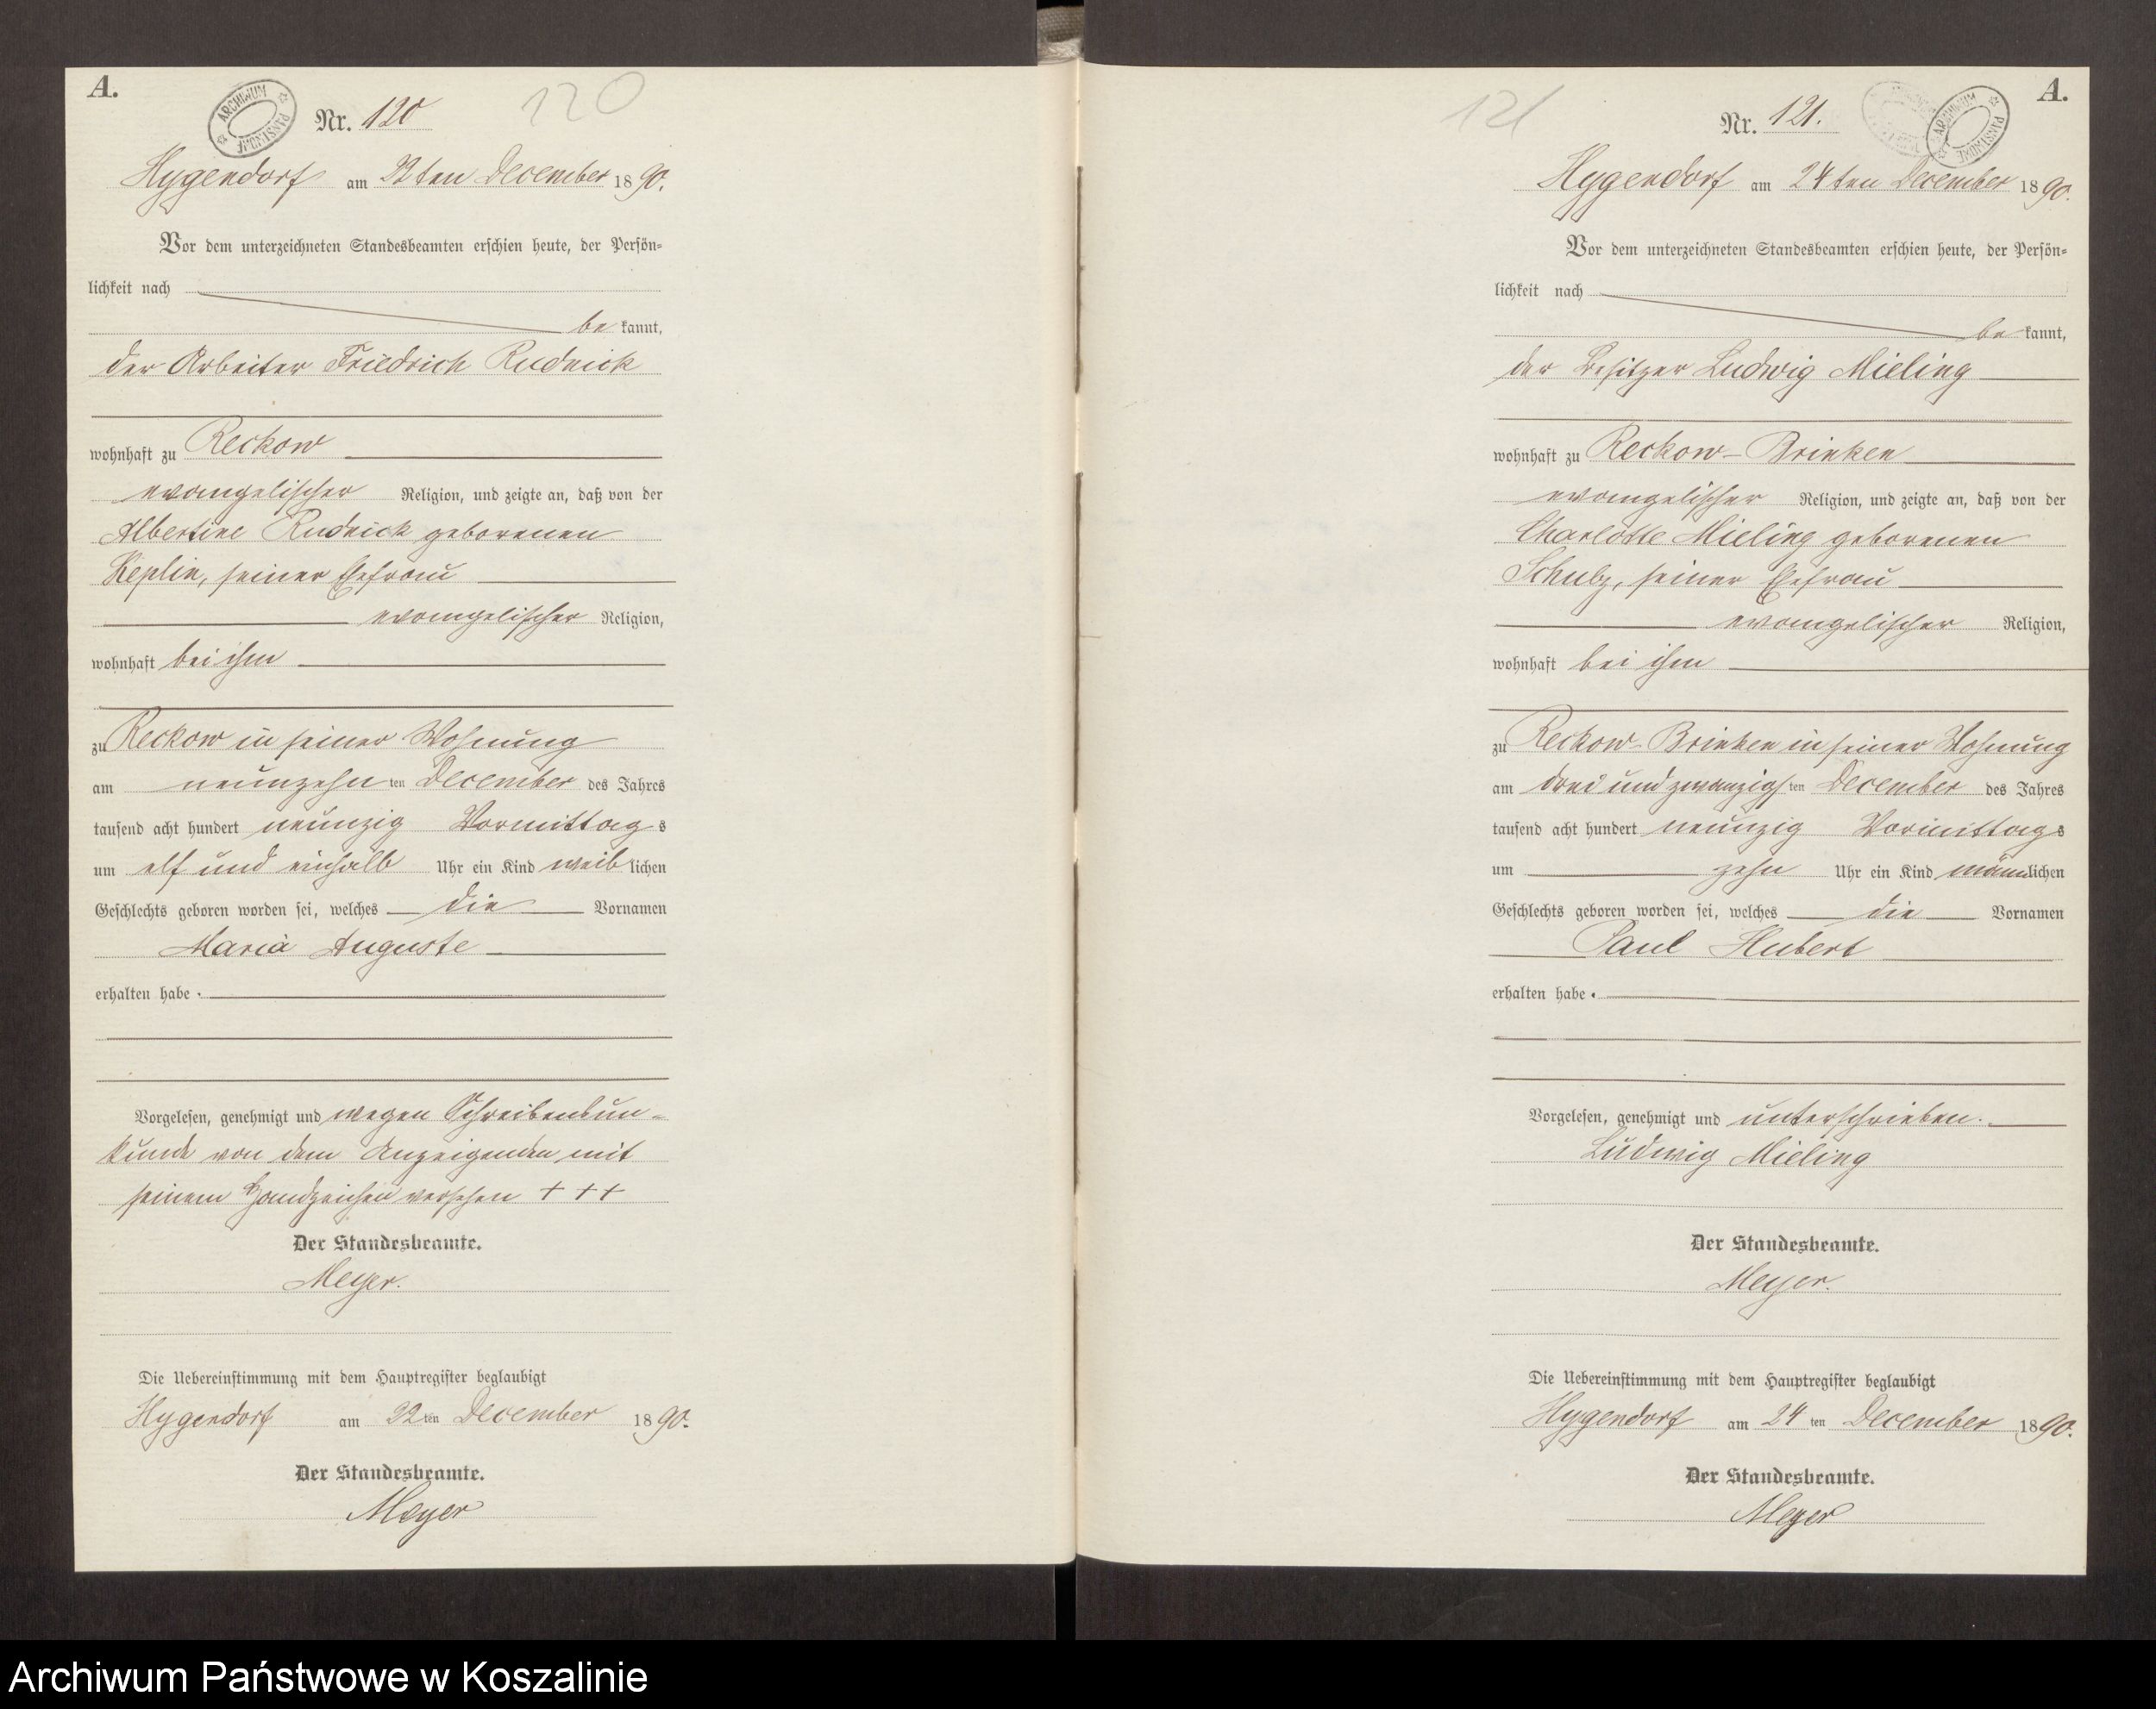 A.
ARCHIWUM PAŃSTWOWE
Nr. 120
120
Hygendorf am 22ten December 1890.
Vor dem unterzeichneten Standesbeamten erschien heute, der Persön=
lichkeit nach
be kannt,
der Arbeiter Friedrich Rudnick
wohnhaft zu Reckow
evangelischer Religion, und zeigte an, daß von der
Albertine Rudnick geborenen
Keplin, seiner Ehefrau
evangelischer Religion,
wohnhaft bei ihm
zu Reckow in seiner Wohnung
am neunzehn ten December des Jahres
tausend acht hundert neunzig Vormittag s
um elf und einhalb Uhr ein Kind weib lichen
Geschlechts geboren worden sei, welches die Vornamen
Maria Auguste
erhalten habe.
Vorgelesen, genehmigt und wegen Schreibensun-
kunde von dem Anzeigenden mit
seinem Handzeichen versehen + + +
Der Standesbeamte.
Meyer.
Die Uebereinstimmung mit dem Hauptregister beglaubigt
Hygendorf am 22 ten December 1890.
Der Standesbeamte.
Meyer
A.
ARCHIWUM PAŃSTWOWE
121
Nr. 121.
Hygendorf am 24ten December 1890.
Vor dem unterzeichneten Standesbeamten erschien heute, der Persön=
lichkeit nach
be kannt,
der Besitzer Ludwig Mieling
wohnhaft zu Reckow-Brinken
evangelischer Religion, und zeigte an, daß von der
Charlotte Mieling geborenen
Schulz, seiner Ehefrau
evangelischer Religion,
wohnhaft bei ihm
zu Reckow-Brinken in seiner Wohnung
am drei und zwanzigs ten December des Jahres
tausend acht hundert neunzig Vormittag s
um zehn Uhr ein Kind männlichen
Geschlechts geboren worden sei, welches die Vornamen
Paul Hubert
erhalten habe.
Vorgelesen, genehmigt und unterschrieben.
Ludwig Mieling
Der Standesbeamte.
Meyer.
Die Uebereinstimmung mit dem Hauptregister beglaubigt
Hygendorf am 24 ten December 1890.
Der Standesbeamte.
Meyer
Archiwum Państwowe w Koszalinie